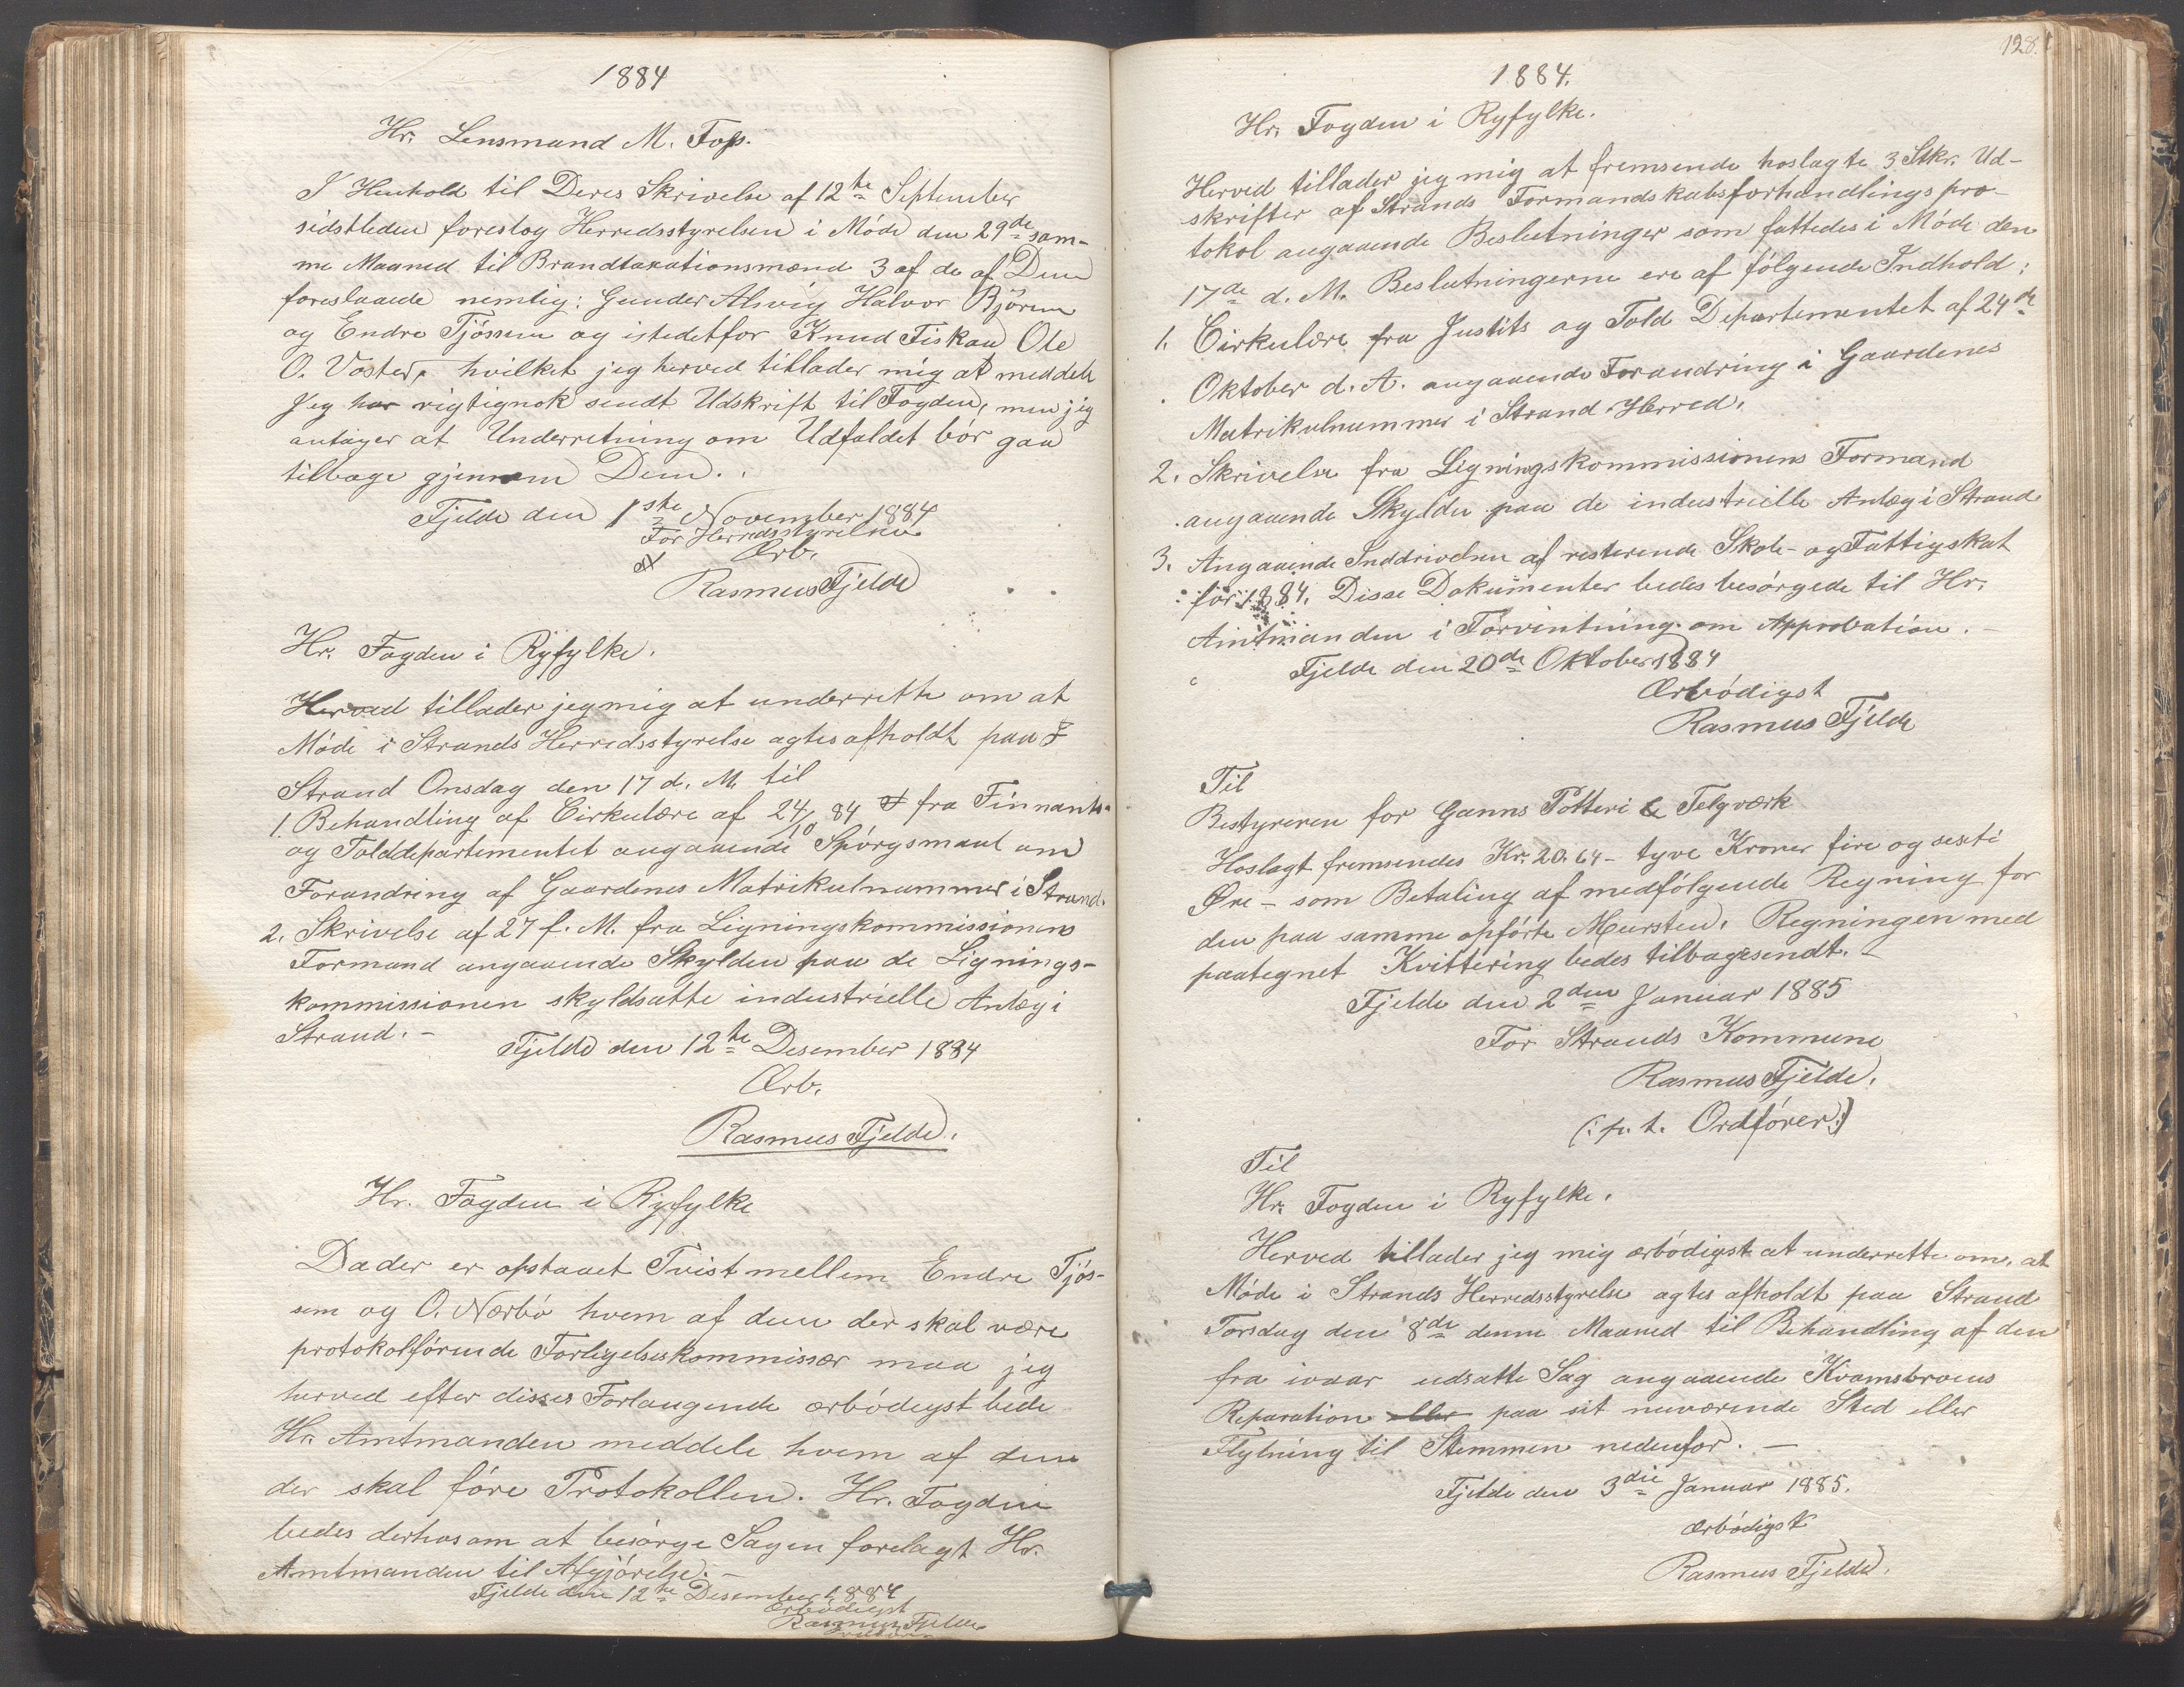 1884
Hr. Lensmand M. Foss.
I Henhold til Deres Skrivelse af 12te September
sidstleden foreslog Herredsstyrelsen i Möde den 29de sam-
me Maaned til Brandtaxationsmænd 3 af de af Dem
foreslaaede nemlig: Gunder Alsvig Halvor Björem
og Endre Tjössem og istedetfor Knud Fiskaa Ole
O. Voster, hvilket jeg herved tillader mig at meddele
Jeg har rigtignok sendt Udskrift til Fogden, men jeg
antager at Underretning om Udfaldet bör gaa
tilbage gjennem Dem.
Fjelde den 1ste November 1884
For Herredsstyrelsen
Ærb.
Rasmus Fjelde
Hr. Fogden i Ryfylke.
Herved tillader jeg mig at underrette om at
Möde i Strands Herredsstyrelse agtes afholdt paa
Strand Onsdag den 17 d. M. til
1. Behandling af Cirkulære af 24/10 84 fra Finnants-
og Tolddepartementet angaaende Spörgsmaal om
Forandring af Gaardenes Matrikulnummer i Strand.
2. Skrivelse af 27 f. M. fra Ligningskommissionens
Formand angaaende Skylden paa de Lignings-
kommissionen skyldsatte industrielle Anlæg i
Strand. -
Fjelde den 12te Desember 1884
Ærb.
Rasmus Fjelde.
Hr. Fogden i Ryfylke
Da der er opstaaet Tvist mellem Endre Tjös-
sem og O. Nærbö hvem af dem der skal være
protokolförende Forligelseskommissær maa jeg
herved efter disses Forlangende ærbödigst bede
Hr. Amtmanden meddele hvem af dem
der skal före Protokollen. Hr. Fogden
bedes derhos om at besörge Sagen forelagt Hr.
Amtmanden til Afgjörelse. -
Fjelde den 12te Desember 1884
Ærbödigst
Rasmus Fjelde
128.
1884.
Hr. Fogden i Ryfylke.
Herved tillader jeg mig at fremsende hoslagte 3 Stkr. Ud-
skrifter af Strands Formandskabsforhandlingspro-
tokol angaaende Beslutninger som fattedes i Möde den
17de d. M. Beslutningerne ere af fölgende Indhold:
1. Cirkulære fra Justits og Told Departementet af 24de
Oktober d. A. angaaende Forandring i Gaardenes
Matrikulnummer i Strand Herred.
2. Skrivelse fra Ligningskommissionens Formand
angaaende Skylden paa de industrielle Anlæg i Strand
3. Angaaende Inddrivelsen af resterende Skole- og Fattigskat
for 1884. Disse Dokumenter bedes besörgede til Hr.
Amtmanden i Forventning om Approbation.
Fjelde den 20de Oktober 1884
Ærbödigst
Rasmus Fjelde
Til
Bestyreren for Ganns Potteri & Telgværk
Hoslagt fremsendes Kr. 20.64 - tyve Kroner fire og sexti
Öre - som Betaling af medfölgende Regning for
den paa samme opförte Mursten. Regningen med
paategnet Kvittering bedes tilbagesendt. -
Fjelde den 2den Januar 1885
For Strands Kommune
Rasmus Fjelde.
(: p. t. Ordförer :)
Til
Hr. Fogden i Ryfylke.
Herved tillader jeg mig ærbödigst at underrette om, at
Möde i Strands Herredsstyrelse agtes afholdt paa Strand
Torsdag den 8de denne Maaned til Behandling af den
fra ivaar udsatte Sag angaaende Kvamsbroens
Reparation eller paa sit nuværende Sted eller
Flytning til Stemmen nedenfor. -
Fjelde den 3die Januar 1885.
ærbödigst
Rasmus Fjelde.